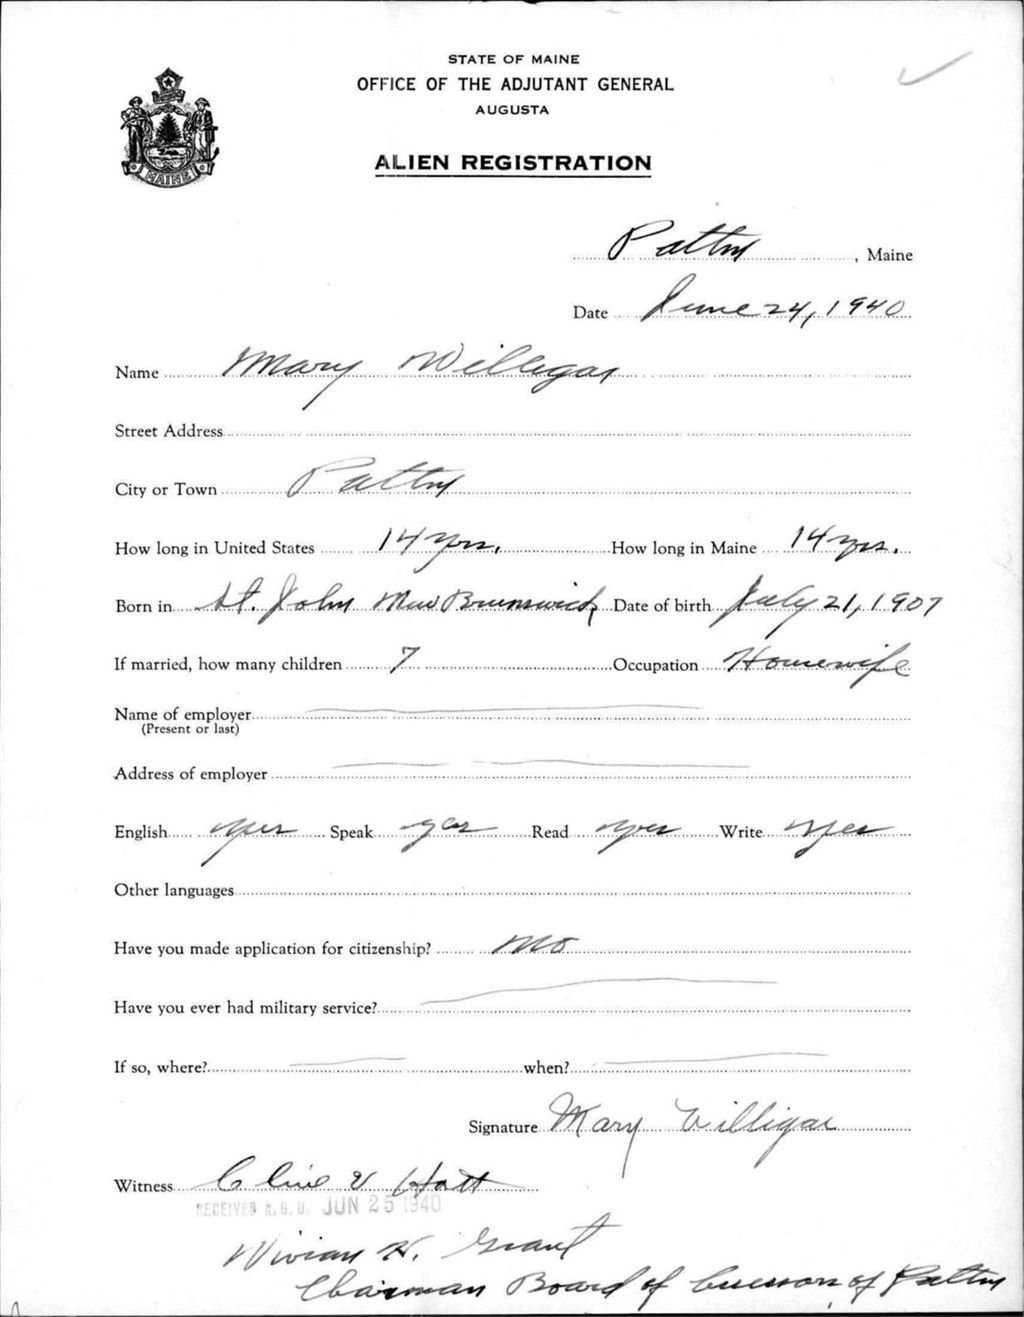 STATE OF MAINE
OFFICE OF THE ADJUTANT GENERAL
AUGUSTA
ALIEN REGISTRATION
MAINE
Patten, Maine
Date June 24, 1940
Name Mary Willigar
Street Address
City or Town Patten
How long in United States 14 yrs. How long in Maine 14 yrs.
Born in St. John New Brunswick Date of birth July 21, 1907
If married, how many children 7 Occupation Housewife
Name of employer
(Present or last)
Address of employer
English yes Speak yes Read yes Write yes
Other languages
Have you made application for citizenship? no
Have you ever had military service?
If so, where? when?
Signature Mary Willigar
Witness V Hatt
RECEIVED A.G.O. JUN 25 1940
Vivian H. Grant
Chairman Board of of Patten